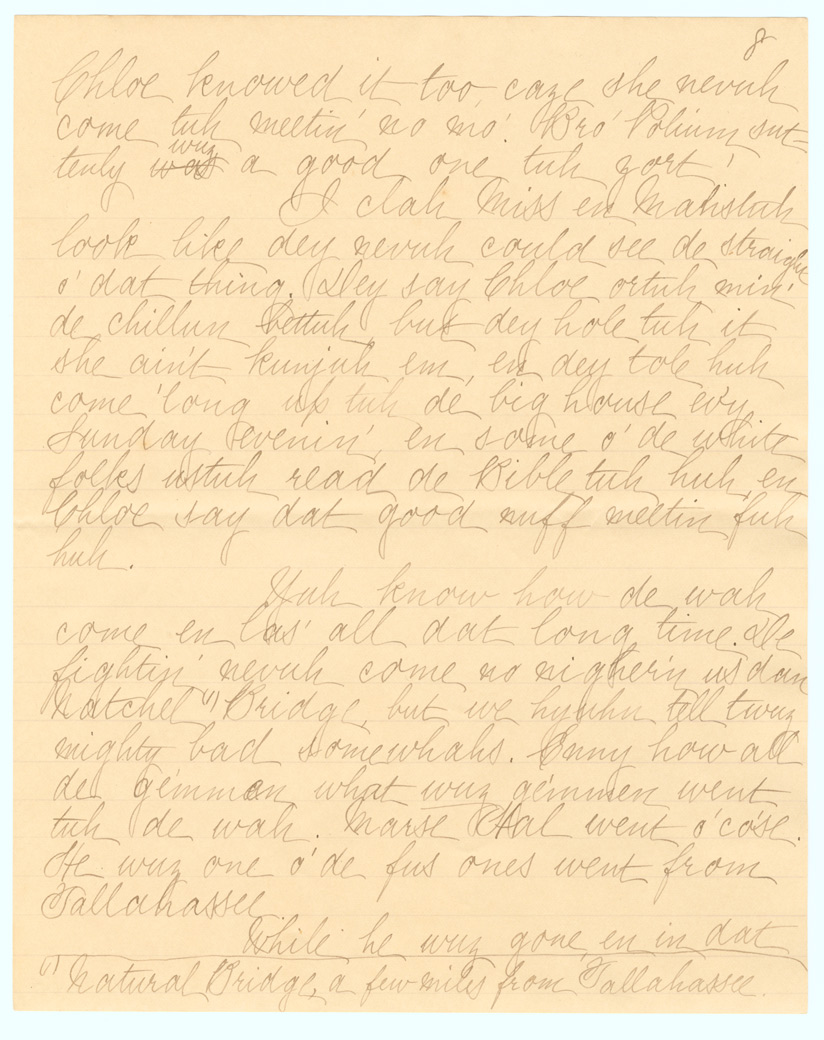 8
Chloe knowed it too, caze she nevuh
come tuh meetin' no mo'. Bro' Polium sut-
tenly was wuz a good one tuh zort!
I clah Miss en Mahstuh
look like dey nevuh could see de straight
o' dat thing. Dey say Chloe ortuh min'
de chillun bettuh, but dey hole tuh it
she ain't kunjuh em, en dey tole huh
come 'long up tuh de big house evy
Sunday evenin', en some o' de white
folks ustuh read de Bible tuh huh, en
Chloe say dat good nuff meetin fuh
huh.
Yuh know how de wah
come en las' all dat long time. De
fightin' nevuh come no nigher'n us dan
Natchel (1) Bridge, but we hyuhn tell twuz
mighty bad somewhahs. Enny how all
de gémmen what wuz gémmen went
tuh de wah. Marse Hal went o' co'se.
He wuz one o' de fus ones went from
Tallahassee
While he wuz gone, en in dat
(1) Natural Bridge, a few miles from Tallahassee.